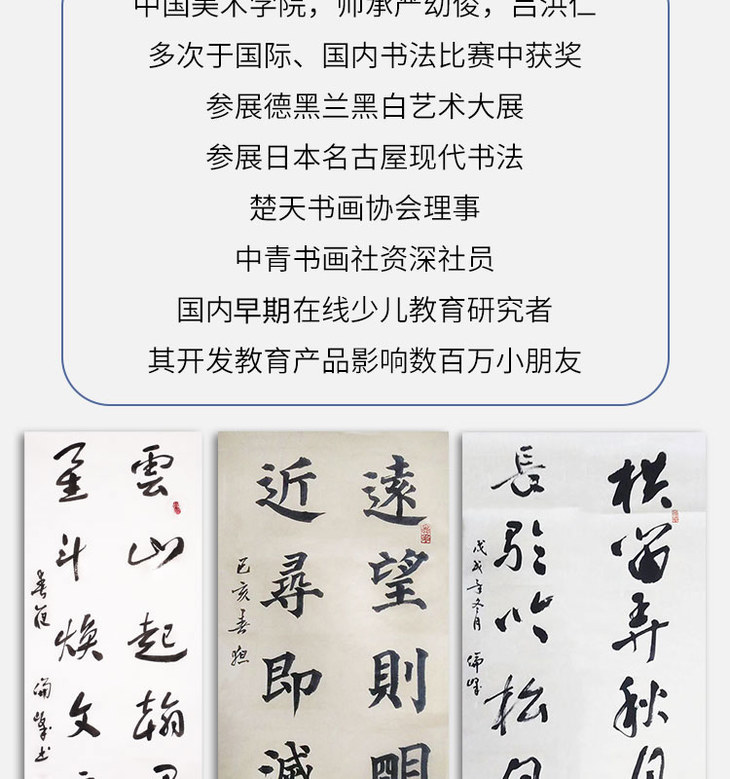 中国美术学院，师承严幼俊，吕洪仁
多次于国际、国内书法比赛中获奖
参展德黑兰黑白艺术大展
参展日本名古屋现代书法
楚天书画协会理事
中青书画社资深社员
国内早期在线少儿教育研究者
其开发教育产品影响数百万小朋友
雲山起翰
星斗焕文
遠望則明
近尋即滅
己亥春
弄秋月
長
松
戊戌年冬月